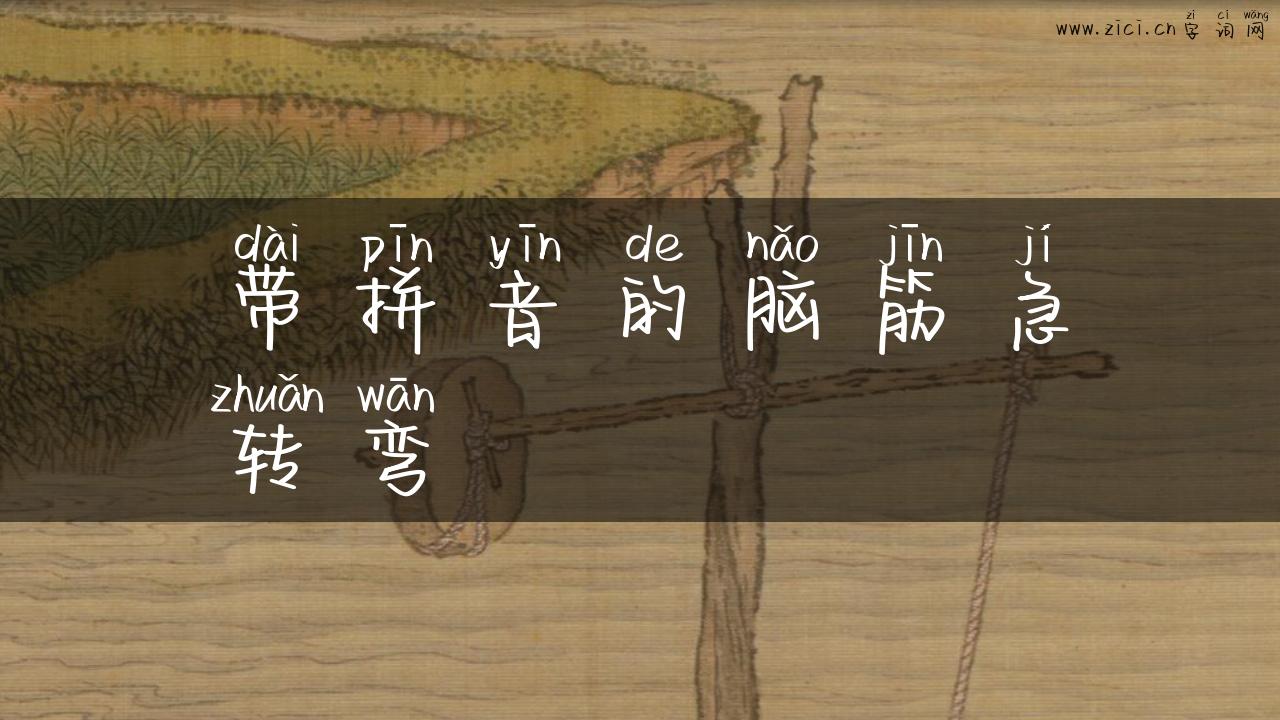 zì cí wǎng
www.zici.cn 字词网
dài pīn yīn de nǎo jīn jí
带拼音的脑筋急
zhuǎn wān
转弯